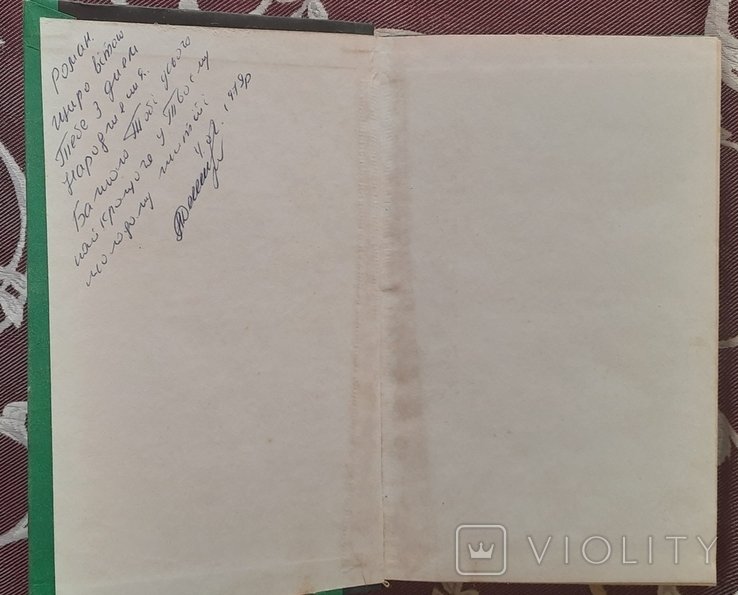 Роман.
Щиро вітаю
Тебе з днем
народження.
Бажаю Тобі усього
найкращого у Твоєму
молодому житті
1979р
VIOLITY